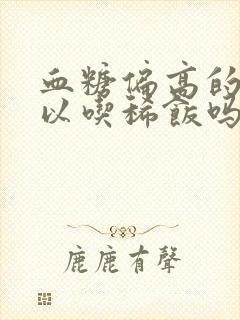 血糖偏高的
以喫稀飯嗎
鹿鹿有聲